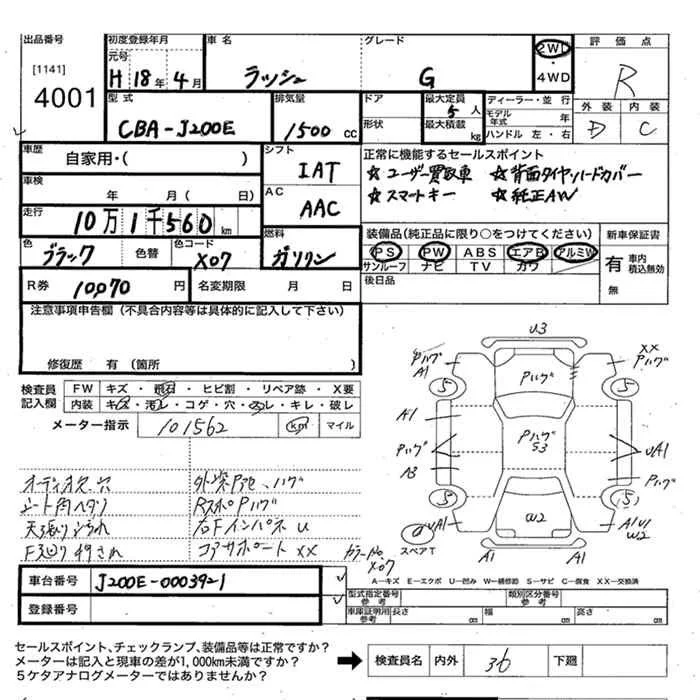 出品番号 初度登録年月 車名 グレード 2WD 評価点
[1141] 元号 4WD
4001 H 18年 4月 ラッシュ G R
型式 排気量 ドア 最大定員 5人 ディーラー・並行 外装 内装
CBA-J200E 1500cc 形状 最大積載 kg モデル年式 年 D C
ハンドル 左・右
車歴 自家用・( ) シフト IAT 正常に機能するセールスポイント
☆ユーザー買取車 ☆背面タイヤ・ハードカバー
車検 年 月( 日) AC AAC ☆スマートキー ☆純正AW
走行 10万1千560km 装備品(純正品に限り○をつけてください) 新車保証書
色 ブラック 色替 色コード X07 燃料 ガソリン PS PW ABS エアB アルミW 有 車内積込無効
サンルーフ ナビ TV カワ 無
R券 10,070円 名変期限 月 日 後日品
注意事項申告欄(不具合内容等は具体的に記入して下さい)
修復歴 有(箇所 )
検査員記入欄 FW キズ・飛石・ヒビ割・リペア跡・X要
内装 キズ・汚レ・コゲ・穴・スレ・キレ・破レ
メーター指示 101562 km マイル
オーディオ欠.穴
シート角ヘタリ Rスポ Pハゲ
天張りよごれ 右Fインパネ U
コアサポート XX カラーNo. X07
U3
Pハゲ A1 Pハゲ XX Pハゲ A1
5 5
A1 Pハゲ S3
Pハゲ UA1
A3 Pハゲ
5 5
UA1 W2 A1U1 W2
スペアT A1 A1
A―キズ E―エクボ U―凹み W―補修跡 S―サビ C―腐食 XX―交換済
車台番号 J200E-0003921 型式指定番号 参考 類別区分番号 参考
登録番号 車庫証明用 参考 長さ cm 幅 cm 高さ cm
セールスポイント、チェックランプ、装備品等は正常ですか?
メーターは記入と現車の差が1,000km未満ですか?
5ケタアナログメーターではありませんか?
検査員名 内外 36 下廻